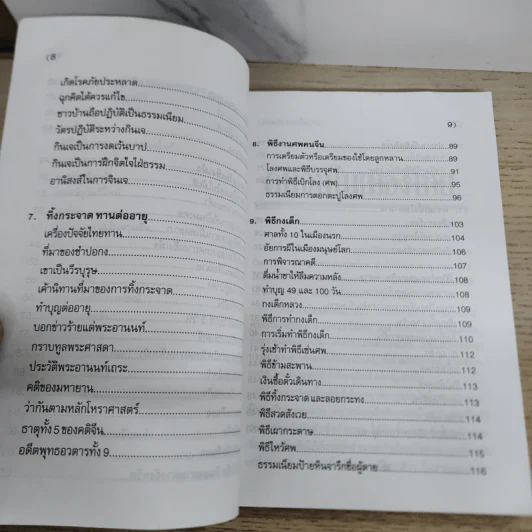 (8
เกิดโรคภัยประหลาด
ฉุกคิดได้ควรแก้ไข
ชาวบ้านถือปฏิบัติเป็นธรรมเนียม
วัตรปฏิบัติระหว่างกินเจ
กินเจเป็นการงดเว้นบาป
กินเจเป็นการฝึกจิตใจใฝ่ธรรม
อานิสงส์ในการกินเจ
7. ทิ้งกระจาด ทานต่ออายุ
เครื่องปัจจัยไทยทาน
ที่มาของซำปอกง
เขาเป็นวีรบุรุษ
เค้านิทานที่มาของการทิ้งกระจาด
ทำบุญต่ออายุ
บอกข่าวร้ายแด่พระอานนท์
กราบทูลพระศาสดา
ประวัติพระอานนท์เถระ
คติของมหายาน
ว่ากันตามหลักโหราศาสตร์
ธาตุทั้ง 5 ของคติจีน
อดีตพุทธอวตารทั้ง 9
9)
8. พิธีงานศพคนจีน 89
การเตรียมตัวหรือเตรียมของใช้โดยลูกหลาน 89
โลงศพและพิธีบรรจุศพ 91
การทำพิธีเบิกโลง (ศพ) 95
ธรรมเนียมการตอกตะปูโลงศพ 96
9. พิธีกงเต็ก 103
ศาลทั้ง 10 ในเมืองนรก 104
อัยการผีในเมืองมนุษย์โลก 106
การพิจารณาคดี 107
ดื่มน้ำชาให้ลืมความหลัง 108
ทำบุญ 49 และ 100 วัน 108
กงเต็กหลวง 109
พิธีการทำกงเต็ก 109
การเริ่มทำพิธีกงเต็ก 110
รุ่งเช้าทำพิธีเซ่นศพ 110
พิธีข้ามสะพาน 112
เงินซื้อตั๋วเดินทาง 113
พิธีทิ้งกระจาด และลอยกระทง 113
พิธีสวดสังเวย 114
พิธีเผากระดาษ 114
พิธีไหว้ศพ 115
ธรรมเนียมป้ายหินจารึกชื่อผู้ตาย 116